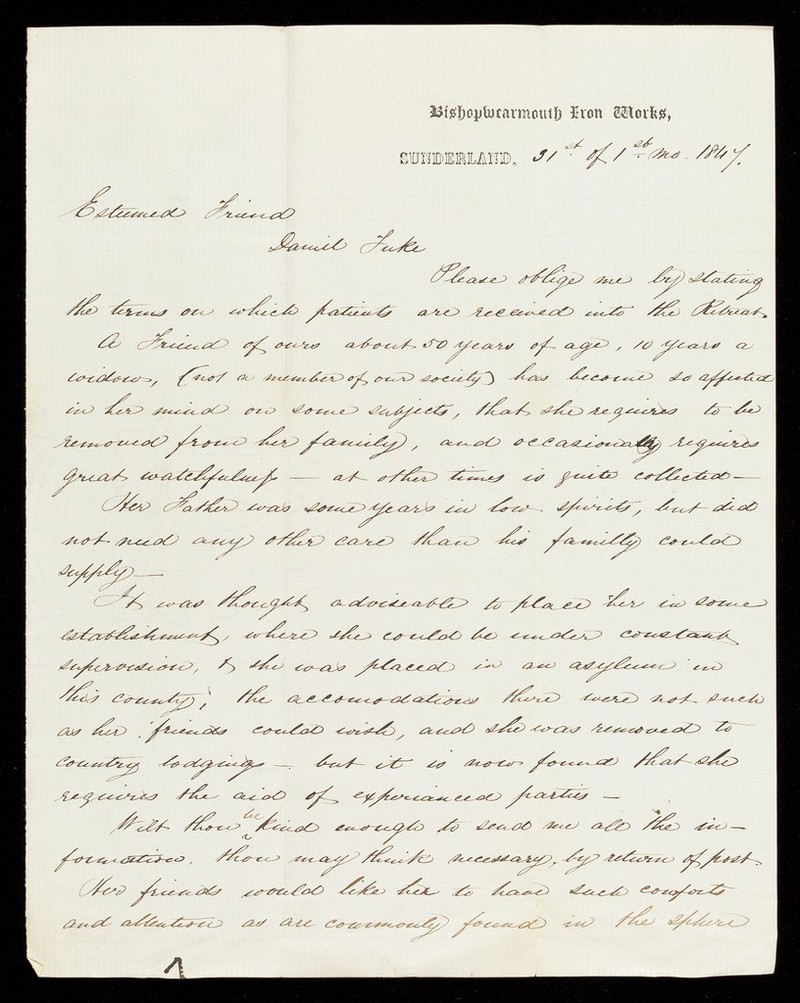 Bishopwearmouth Iron Works,
SUNDERLAND. 31st of 1st mo. 1847.
Esteemed Friend
Daniel Tuke
Please oblige me by stating
the terms on which patients are received into the Retreat.
A Friend of ours about 50 years of age, 10 years a
widow, (not a member of our society) has become so affected
in her mind on some subjects, that she requires to be
removed from her family, and occasionally requires
great watchfulness — at other times is quite collected —
Her Father was some years in low spirits, but did
not need any other care than his familly could
supply —
It was thought adviseable to place her in some
establishment, where she could be under constant
supervision, & she was placed in an asylum in
this county; the accomodations there were not such
as her friends could wish, and she was removed to
country lodgings — but it is now found that she
requires the aid of experianced parties —
Wilt thou be kind enough to send me all the in-
formation, thou may think necessary, by return of post.
Her friends would like her to have such comforts
and attention as are commonly found in the sphere